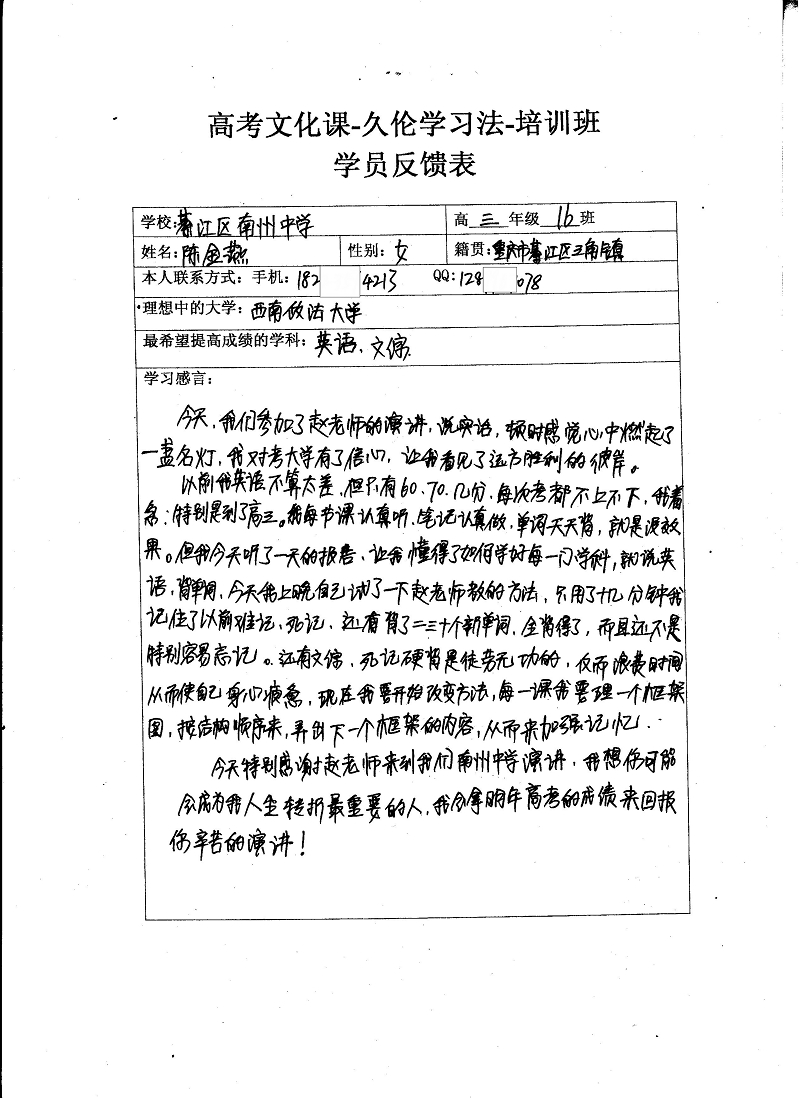 高考文化课-久伦学习法-培训班
学员反馈表
学校:綦江区南州中学 高 三 年级 16 班
姓名:陈金燕 性别:女 籍贯:重庆市綦江区三角镇
本人联系方式:手机:182 4213 QQ:128 078
理想中的大学:西南政法大学
最希望提高成绩的学科:英语、文综
学习感言:
今天,我们参加了赵老师的演讲,说实话,顿时感觉心中燃起了
一盏名灯,我对考大学有了信心,让我看见了远方胜利的彼岸。
以前我英语不算太差,但只有60、70.几分,每次考都不上不下,我着
急;特别是到了高三。我每节课认真听、笔记认真做,单词天天背,就是没效
果。但我今天听了一天的报告、让我懂得了如何学好每一门学科,就说英
语,背单词,今天我上晚自己试了一下赵老师教的方法,只用了十几分钟我
记住了以前难记、死记、还有背了二三十个新单词,全背得了,而且还不是
特别容易忘记。还有文综、死记硬背是徒劳无功的,反而浪费时间
从而使自己身心疲惫,现在我要开始改变方法,每一课我要理一个框架
图,按结构顺序来,弄到下一个框架的内容,从而来加强记忆.
今天特别感谢赵老师来到我们南州中学演讲,我想你可能
会成为我人生转折最重要的人,我会拿明年高考的成绩来回报
你辛苦的演讲!